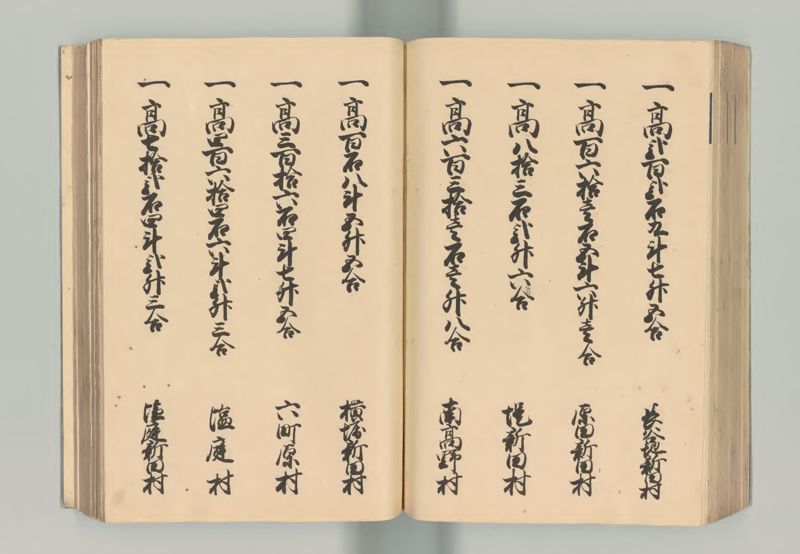 一高弐百弐石九斗七升五合 長久保新田村
一高百六拾壱石五斗六升壱合 原田新田村
一高八拾三石弐升六合 堤新田村
一高六百三拾壱石壱升八合 南高野村
一高百石八斗五升五合 横堀新田村
一高三百拾六石四斗七升五合 六町原村
一高四百六拾四石六斗弐升三合 塩庭村
一高七拾弐石四斗弐升三合 塩庭新田村